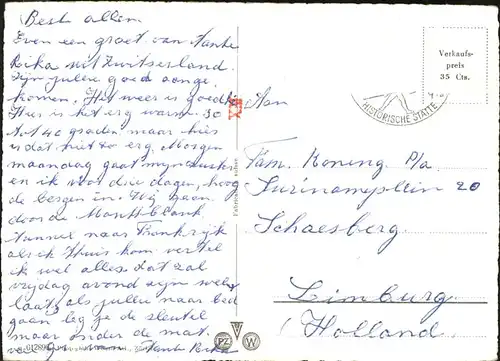 Beste allen.
Even een groet van Tante
Rika uit Zwitserland.
Zijn jullie goed aange
komen. Het weer is goed
Hier is het erg warm. 30
tot 40 graden maar hier
is dat niet zo erg. Morgen
maandag gaat mijn zuster
en ik voor drie dagen, hoog
de bergen in. Wij gaan
door de Montblank
tunnel naar Frankrijk
als ik thuis kom vertel
ik wel alles. Dat zal
vrijdag avond zijn
laat, als jullie naar bed
gaan leg je de sleutel
maar onder de mat.
Tante Rika
Verkaufs-
preis
35 Cts.
HISTORISCHE STÄTTE
Aan
Fam. Koning P/a
Surinameplein 20
Schaesberg
Limburg
Holland
PZ
W